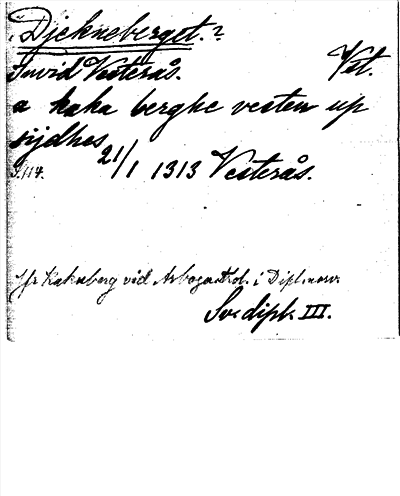 Djekneberget?
Invid Vesterås. Vst.
a kaka berghe vesten up
sijdhes
S. 114. 21/1 1313 Vesterås.
Jfr Kakuberg vid Arboga i Dipl.
Sv. dipl. III.